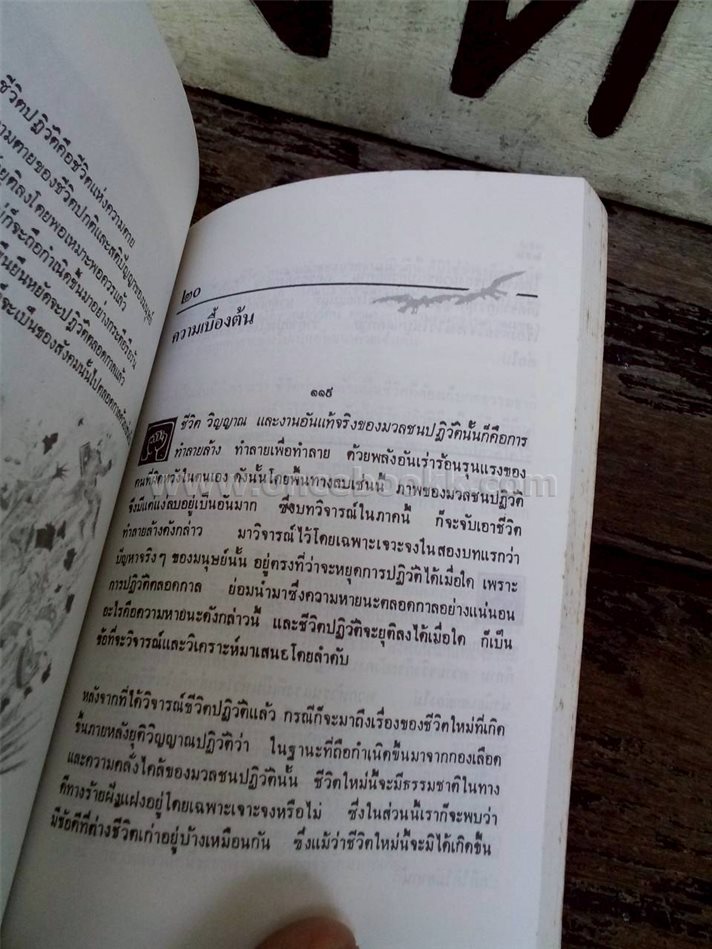 ชีวิตปฏิวัติคือชีวิตแห่งความตาย
ความตายของชีวิตปกติและสติปัญญาของมนุษย์
ยุติลงโดยพอเหมาะพอควรแล้ว
ก็จะถือกำเนิดขึ้นมาอย่าง
ยืนหยัดจะปฏิวัติตลอดกาลแล้ว
จะเป็นของสังคมนั้นไปตลอดกาล
๒๐
ความเบื้องต้น
๑๑๕
ชีวิต วิญญาณ และงานอันแท้จริงของมวลชนปฏิวัตินั้นก็คือการ
ทำลายล้าง ทำลายเพื่อทำลาย ด้วยพลังอันเร่าร้อนรุนแรงของ
คนที่ผิดหวังในตนเอง ดังนั้นโดยพื้นทางลบเช่นนี้ ภาพของมวลชนปฏิวัติ
จึงมีแต่แง่ลบอยู่เป็นอันมาก ซึ่งบทวิจารณ์ในภาคนี้ ก็จะจับเอาชีวิต
ทำลายล้างดังกล่าว มาวิจารณ์ไว้โดยเฉพาะเจาะจงในสองบทแรกว่า
ปัญหาจริงๆ ของมนุษย์นั้น อยู่ตรงที่ว่าจะหยุดการปฏิวัติได้เมื่อใด เพราะ
การปฏิวัติตลอดกาล ย่อมนำมาซึ่งความหายนะตลอดกาลอย่างแน่นอน
อะไรคือความหายนะดังกล่าวนี้ และชีวิตปฏิวัติจะยุติลงได้เมื่อใด ก็เป็น
ข้อที่จะวิจารณ์และวิเคราะห์มาเสนอโดยลำดับ
หลังจากที่ได้วิจารณ์ชีวิตปฏิวัติแล้ว กรณีก็จะมาถึงเรื่องของชีวิตใหม่ที่เกิด
ขึ้นภายหลังยุติวิญญาณปฏิวัติว่า ในฐานะที่ถือกำเนิดขึ้นมาจากกองเลือด
และความคลั่งไคล้ของมวลชนปฏิวัตินั้น ชีวิตใหม่นี้จะมีธรรมชาติในทาง
ดีทางร้ายฝังแฝงอยู่โดยเฉพาะเจาะจงหรือไม่ ซึ่งในส่วนนี้เราก็จะพบว่า
มีข้อดีที่ต่างชีวิตเก่าอยู่บ้างเหมือนกัน ซึ่งแม้ว่าชีวิตใหม่นี้จะมิได้เกิดขึ้น